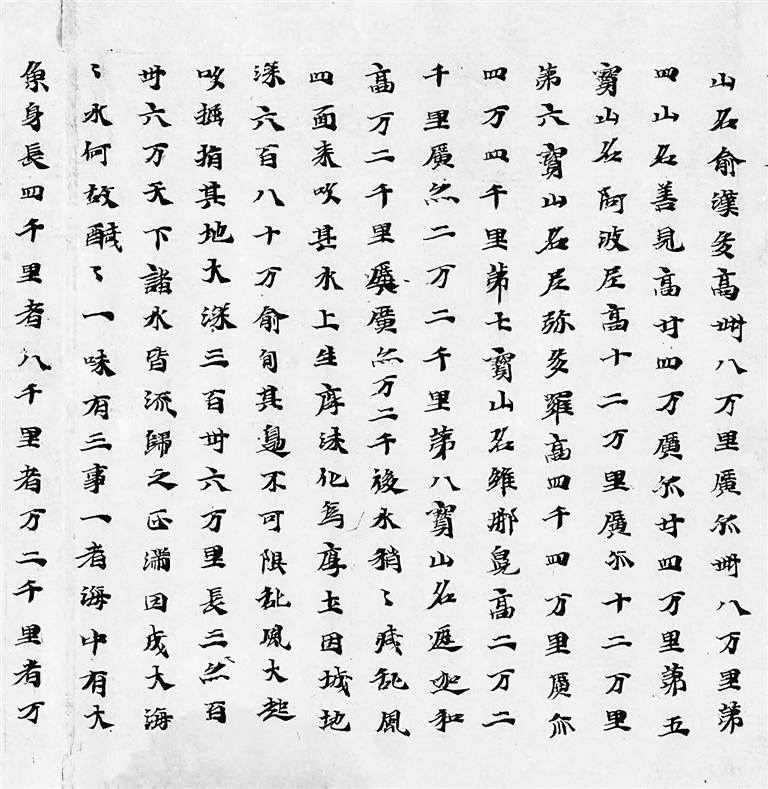 山名俞漢多高卌八万里廣尒卌八万里第
四山名善見高廿四万廣尒廿四万里第五
寳山名阿波尼高十二万里廣尒十二万里
第六寳山名尼弥多羅高四千四万里廣尒
四万四千里第七寳山名維那兒高二万二
千里廣尒二万二千里第八寳山名遮迦和
高万二千里廣廣尒万二千後水稍〻殘乱風
四面来吹其水上生摩沫化為厚土因城地
深六百八十万俞旬其邊不可限乱風大起
吹掘損其地大深三百卅六万里長三尒百
卅六万天下諸水皆流歸之疋滿因成大海
〻水何故醎〻一味有三事一者海中有大
魚身長四千里者八千里者万二千里者万